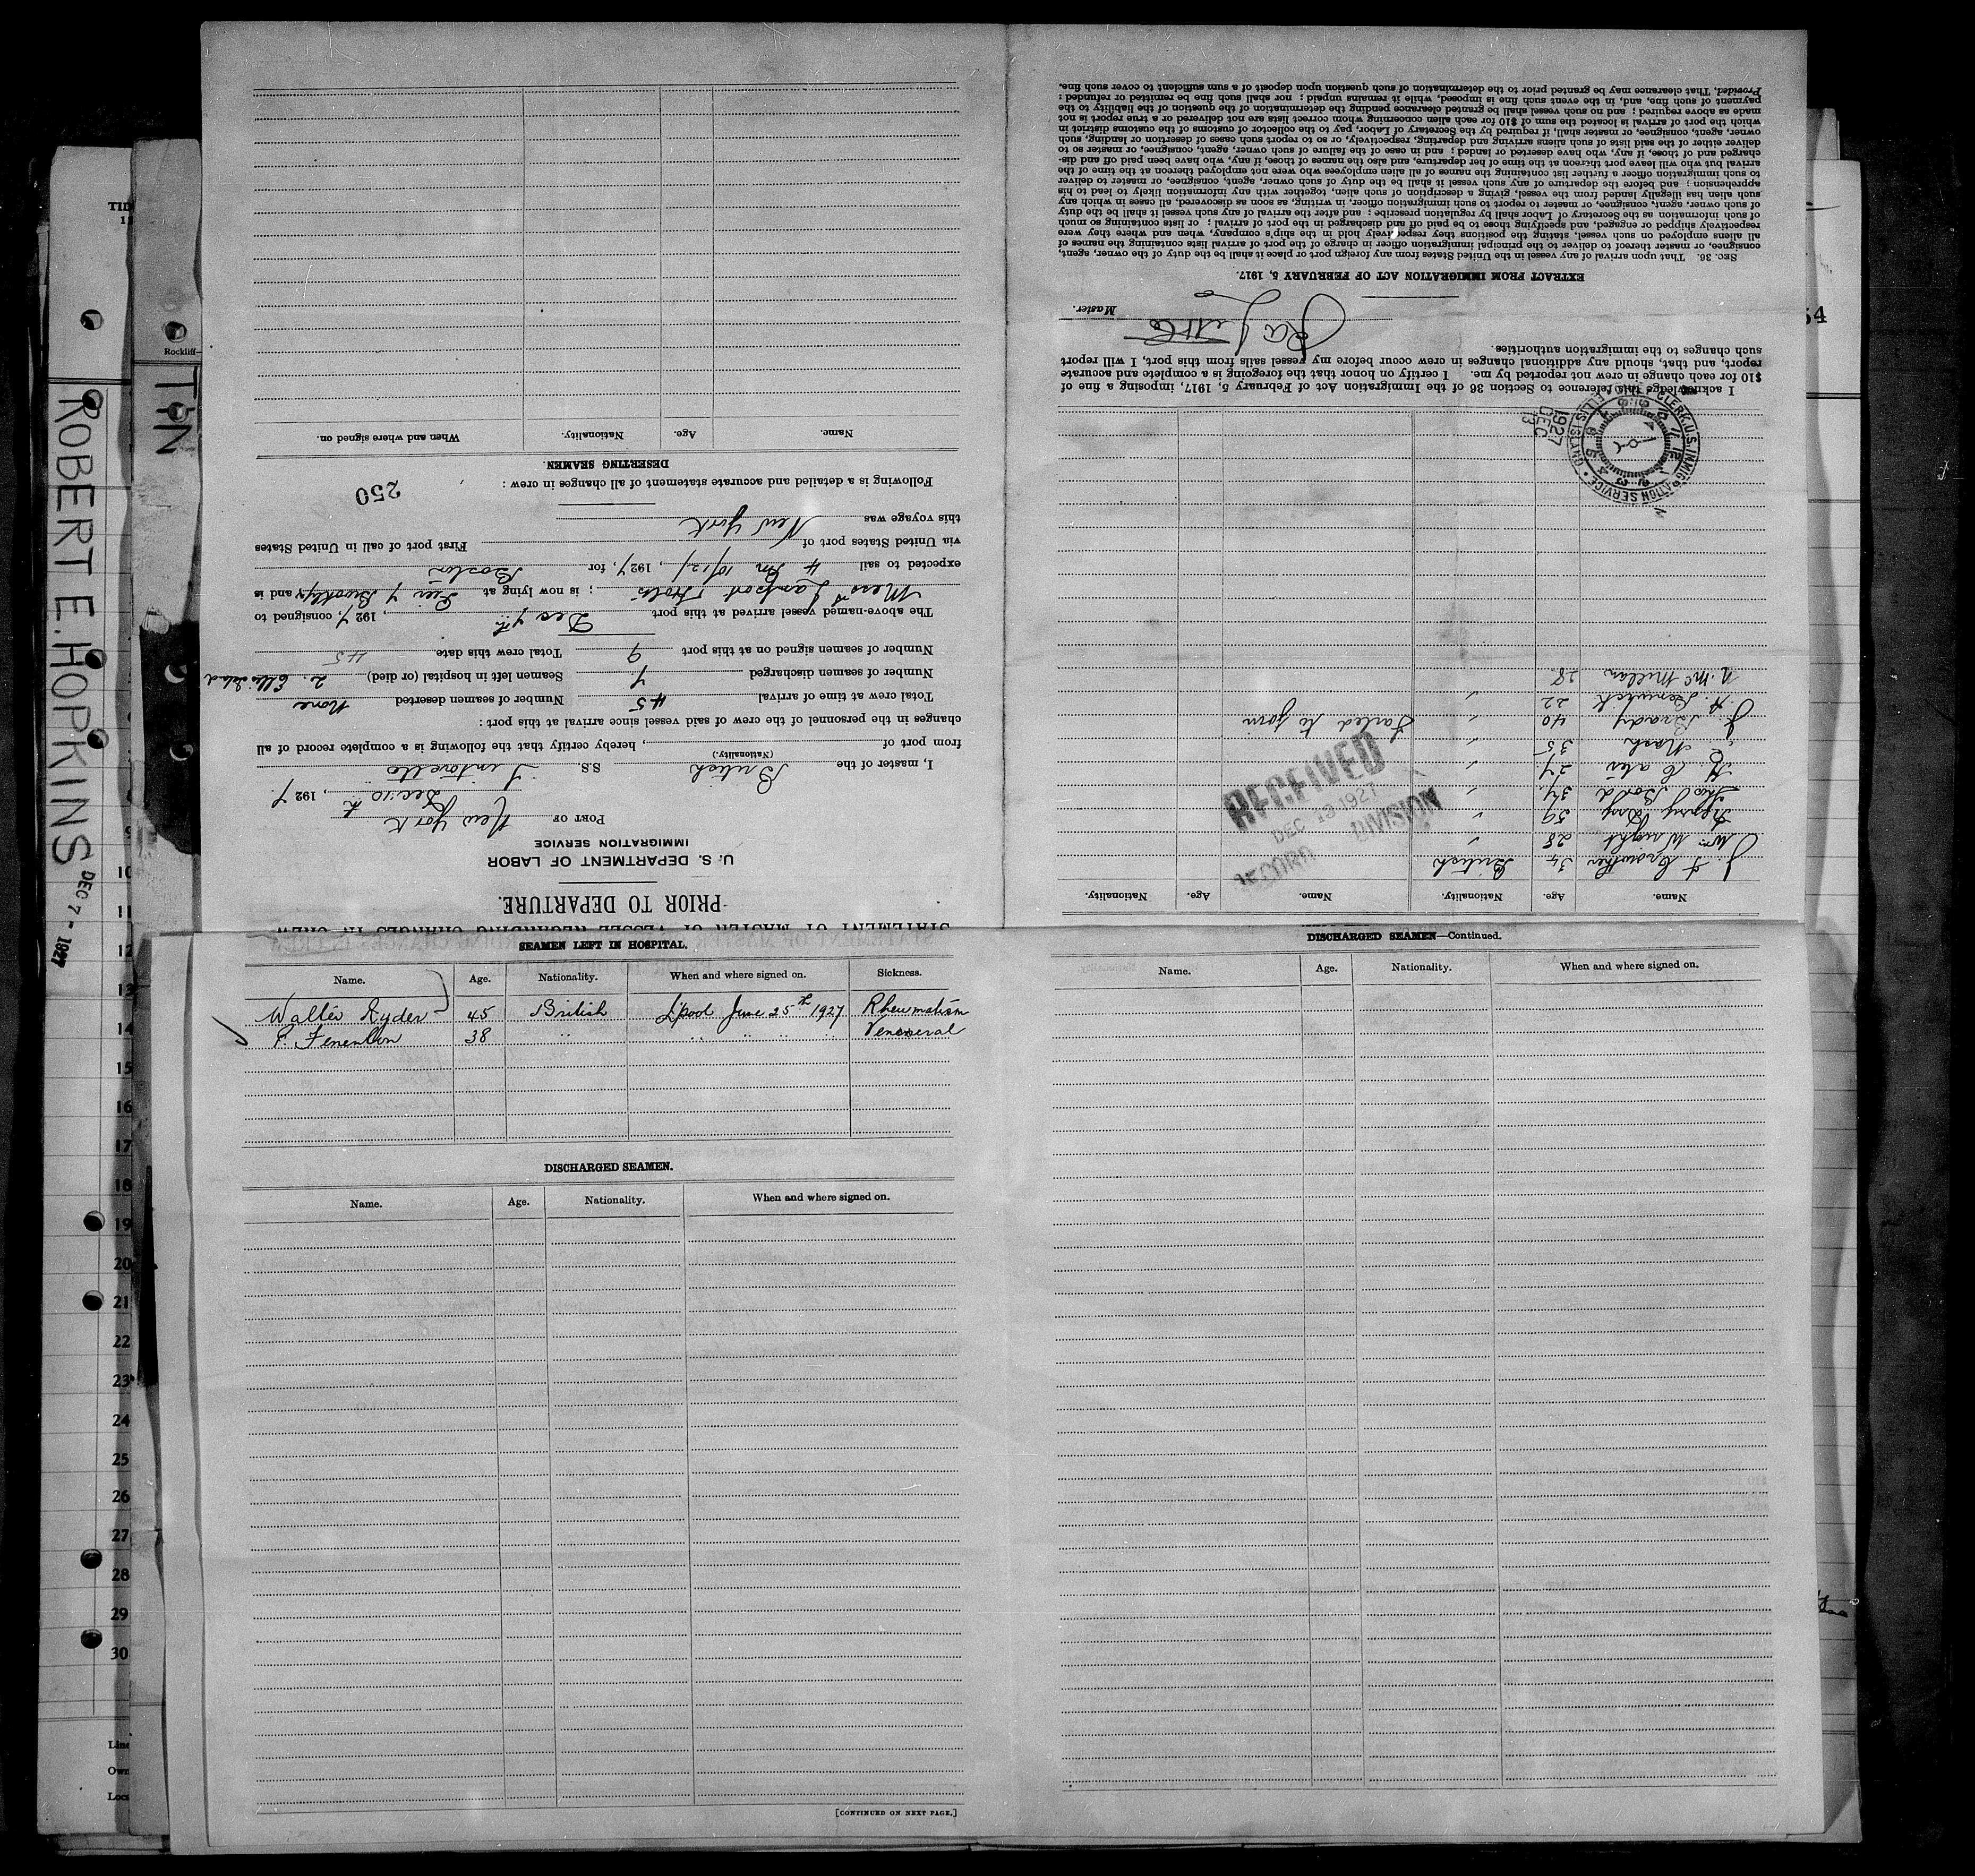 STATEMENT OF MASTER OF VESSEL REGARDING CHANGES IN CREW
PRIOR TO DEPARTURE.
U. S. DEPARTMENT OF LABOR
IMMIGRATION SERVICE
PORT OF New York
Dec: 10th, 1927.
I, master of the British S.S.
(Nationality.)
from port of , hereby certify that the following is a complete record of all
changes in the personnel of the crew of said vessel since arrival at this port:
Total crew at time of arrival 45 Number of seamen deserted None
Number of seamen discharged 7 Seamen left in hospital (or died) 2. Ellis Island
Number of seamen signed on at this port 9 Total crew this date 45
The above-named vessel arrived at this port Dec 7th, 1927, consigned to
Messrs Lamport Holt; is now lying at Pier 7 Brooklyn and is
expected to sail 4 Pm 10/12/, 1927, for Boston
via United States port of First port of call in United States
this voyage was New York
Following is a detailed and accurate statement of all changes in crew:
250
DESERTING SEAMEN.
Name. Age. Nationality. When and where signed on.
SEAMEN LEFT IN HOSPITAL.
Name. Age. Nationality. When and where signed on. Sickness.
Walter Ryder 45 British L'pool June 25th 1927 Rheumatism
38 " " " " " Veneeral
DISCHARGED SEAMEN.
Name. Age. Nationality. When and where signed on.
[CONTINUED ON NEXT PAGE.]
DISCHARGED SEAMEN—Continued.
Name. Age. Nationality. When and where signed on.
Name. Age. Nationality. Name. Age. Nationality.
J. F. Crowther 34 British
Wm Wright 28 "
Henry Day 59 "
Thos Boyd 34. "
H. Cates 27. "
C. Nash 35 "
J. Brady 40 " Failed to join
22 "
N. McMillan 28.
RECEIVED
DEC 13 1927
RECORD DIVISION
CLERK, U.S. IMMIGRATION SERVICE • ELLIS ISLAND
1927
DEC
13
I acknowledge this reference to Section 36 of the Immigration Act of February 5, 1917, imposing a fine of
$10 for each change in crew not reported by me. I certify on honor that the foregoing is a complete and accurate
report, and that, should any additional changes in crew occur before my vessel sails from this port, I will report
such changes to the immigration authorities.
Master.
EXTRACT FROM IMMIGRATION ACT OF FEBRUARY 5, 1917.
SEC. 36. That upon arrival of any vessel in the United States from any foreign port or place it shall be the duty of the owner, agent,
consignee, or master thereof to deliver to the principal immigration officer in charge of the port of arrival lists containing the names of
all aliens employed on such vessel, stating the positions they respectively hold in the ship's company, when and where they were
respectively shipped or engaged, and specifying those to be paid off and discharged in the port of arrival; or lists containing so much
of such information as the Secretary of Labor shall by regulation prescribe; and after the arrival of any such vessel it shall be the duty
of such owner, agent, consignee, or master to report to such immigration officer, in writing, as soon as discovered, all cases in which any
such alien has illegally landed from the vessel, giving a description of such alien, together with any information likely to lead to his
apprehension; and before the departure of any such vessel it shall be the duty of such owner, agent, consignee, or master to deliver
to such immigration officer a further list containing the names of all alien employees who were not employed thereon at the time of the
arrival but who will leave port thereon at the time of her departure, and also the names of those, if any, who have been paid off and dis-
charged and of those, if any, who have deserted or landed; and in case of the failure of such owner, agent, consignee, or master so to
deliver either of the said lists of such aliens arriving and departing, respectively, or so to report such cases of desertion or landing, such
owner, agent, consignee, or master shall, if required by the Secretary of Labor, pay to the collector of customs of the customs district in
which the port of arrival is located the sum of $10 for each alien concerning whom correct lists are not delivered or a true report is not
made as above required; and no such vessel shall be granted clearance pending the determination of the question of the liability to the
payment of such fine, and, in the event such fine is imposed, while it remains unpaid; nor shall such fine be remitted or refunded:
Provided, That clearance may be granted prior to the determination of such question upon deposit of a sum sufficient to cover such fine.
ROBERT E. HOPKINS DEC 7 - 1927
TIN
Rockliff
10
11
12
13
14
15
16
17
18
19
20
21
22
23
24
25
26
27
28
29
30
54